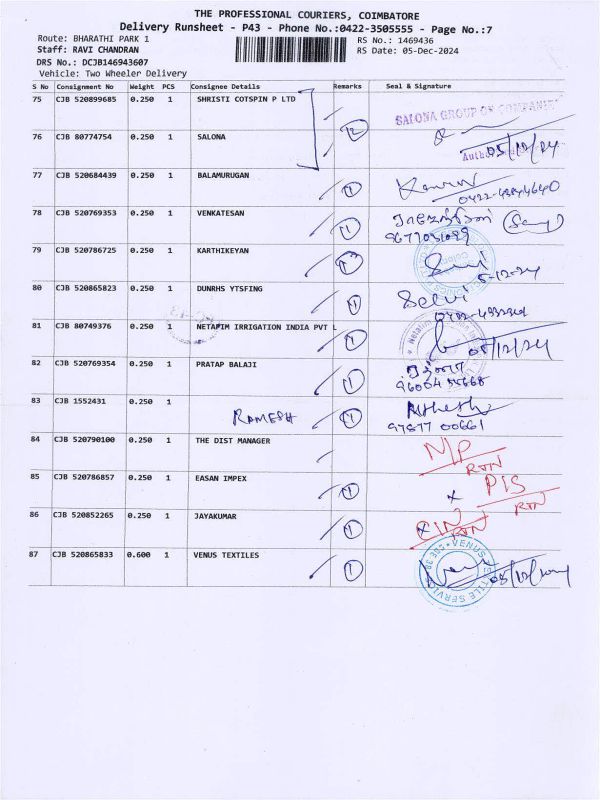 THE PROFESSIONAL COURIERS, COIMBATORE
Delivery Runsheet - P43 - Phone No.:0422-3505555 - Page No.:7
Route: BHARATHI PARK 1
RS No.: 1469436
Staff: RAVI CHANDRAN
RS Date: 05-Dec-2024
DRS No.: DCJB146943607
Vehicle: Two Wheeler Delivery
S No Consignment No Weight PCS Consignee Details Remarks Seal & Signature
75 CJB 520899685 0.250 1 SHRISTI COTSPIN P LTD
SALONA GROUP OF COMPANIE
76 CJB 80774754 0.250 1 SALONA 2
05/12/24
77 CJB 520684439 0.250 1 BALAMURUGAN 1
78 CJB 520769353 0.250 1 VENKATESAN 1
79 CJB 520786725 0.250 1 KARTHIKEYAN
5-12-24
80 CJB 520865823 0.250 1 DUNRHS YTSFING 1 Selvi
81 CJB 80749376 0.250 1 NETAFIM IRRIGATION INDIA PVT L 1
05/12/24
82 CJB 520769354 0.250 1 PRATAP BALAJI 1
83 CJB 1552431 0.250 1 RAMESH 1
97877 00661
84 CJB 520790100 0.250 1 THE DIST MANAGER N/P
RTN
85 CJB 520786857 0.250 1 EASAN IMPEX 1 x P/S
RTN
86 CJB 520852265 0.250 1 JAYAKUMAR 1 RTN
87 CJB 520865833 0.600 1 VENUS TEXTILES 1